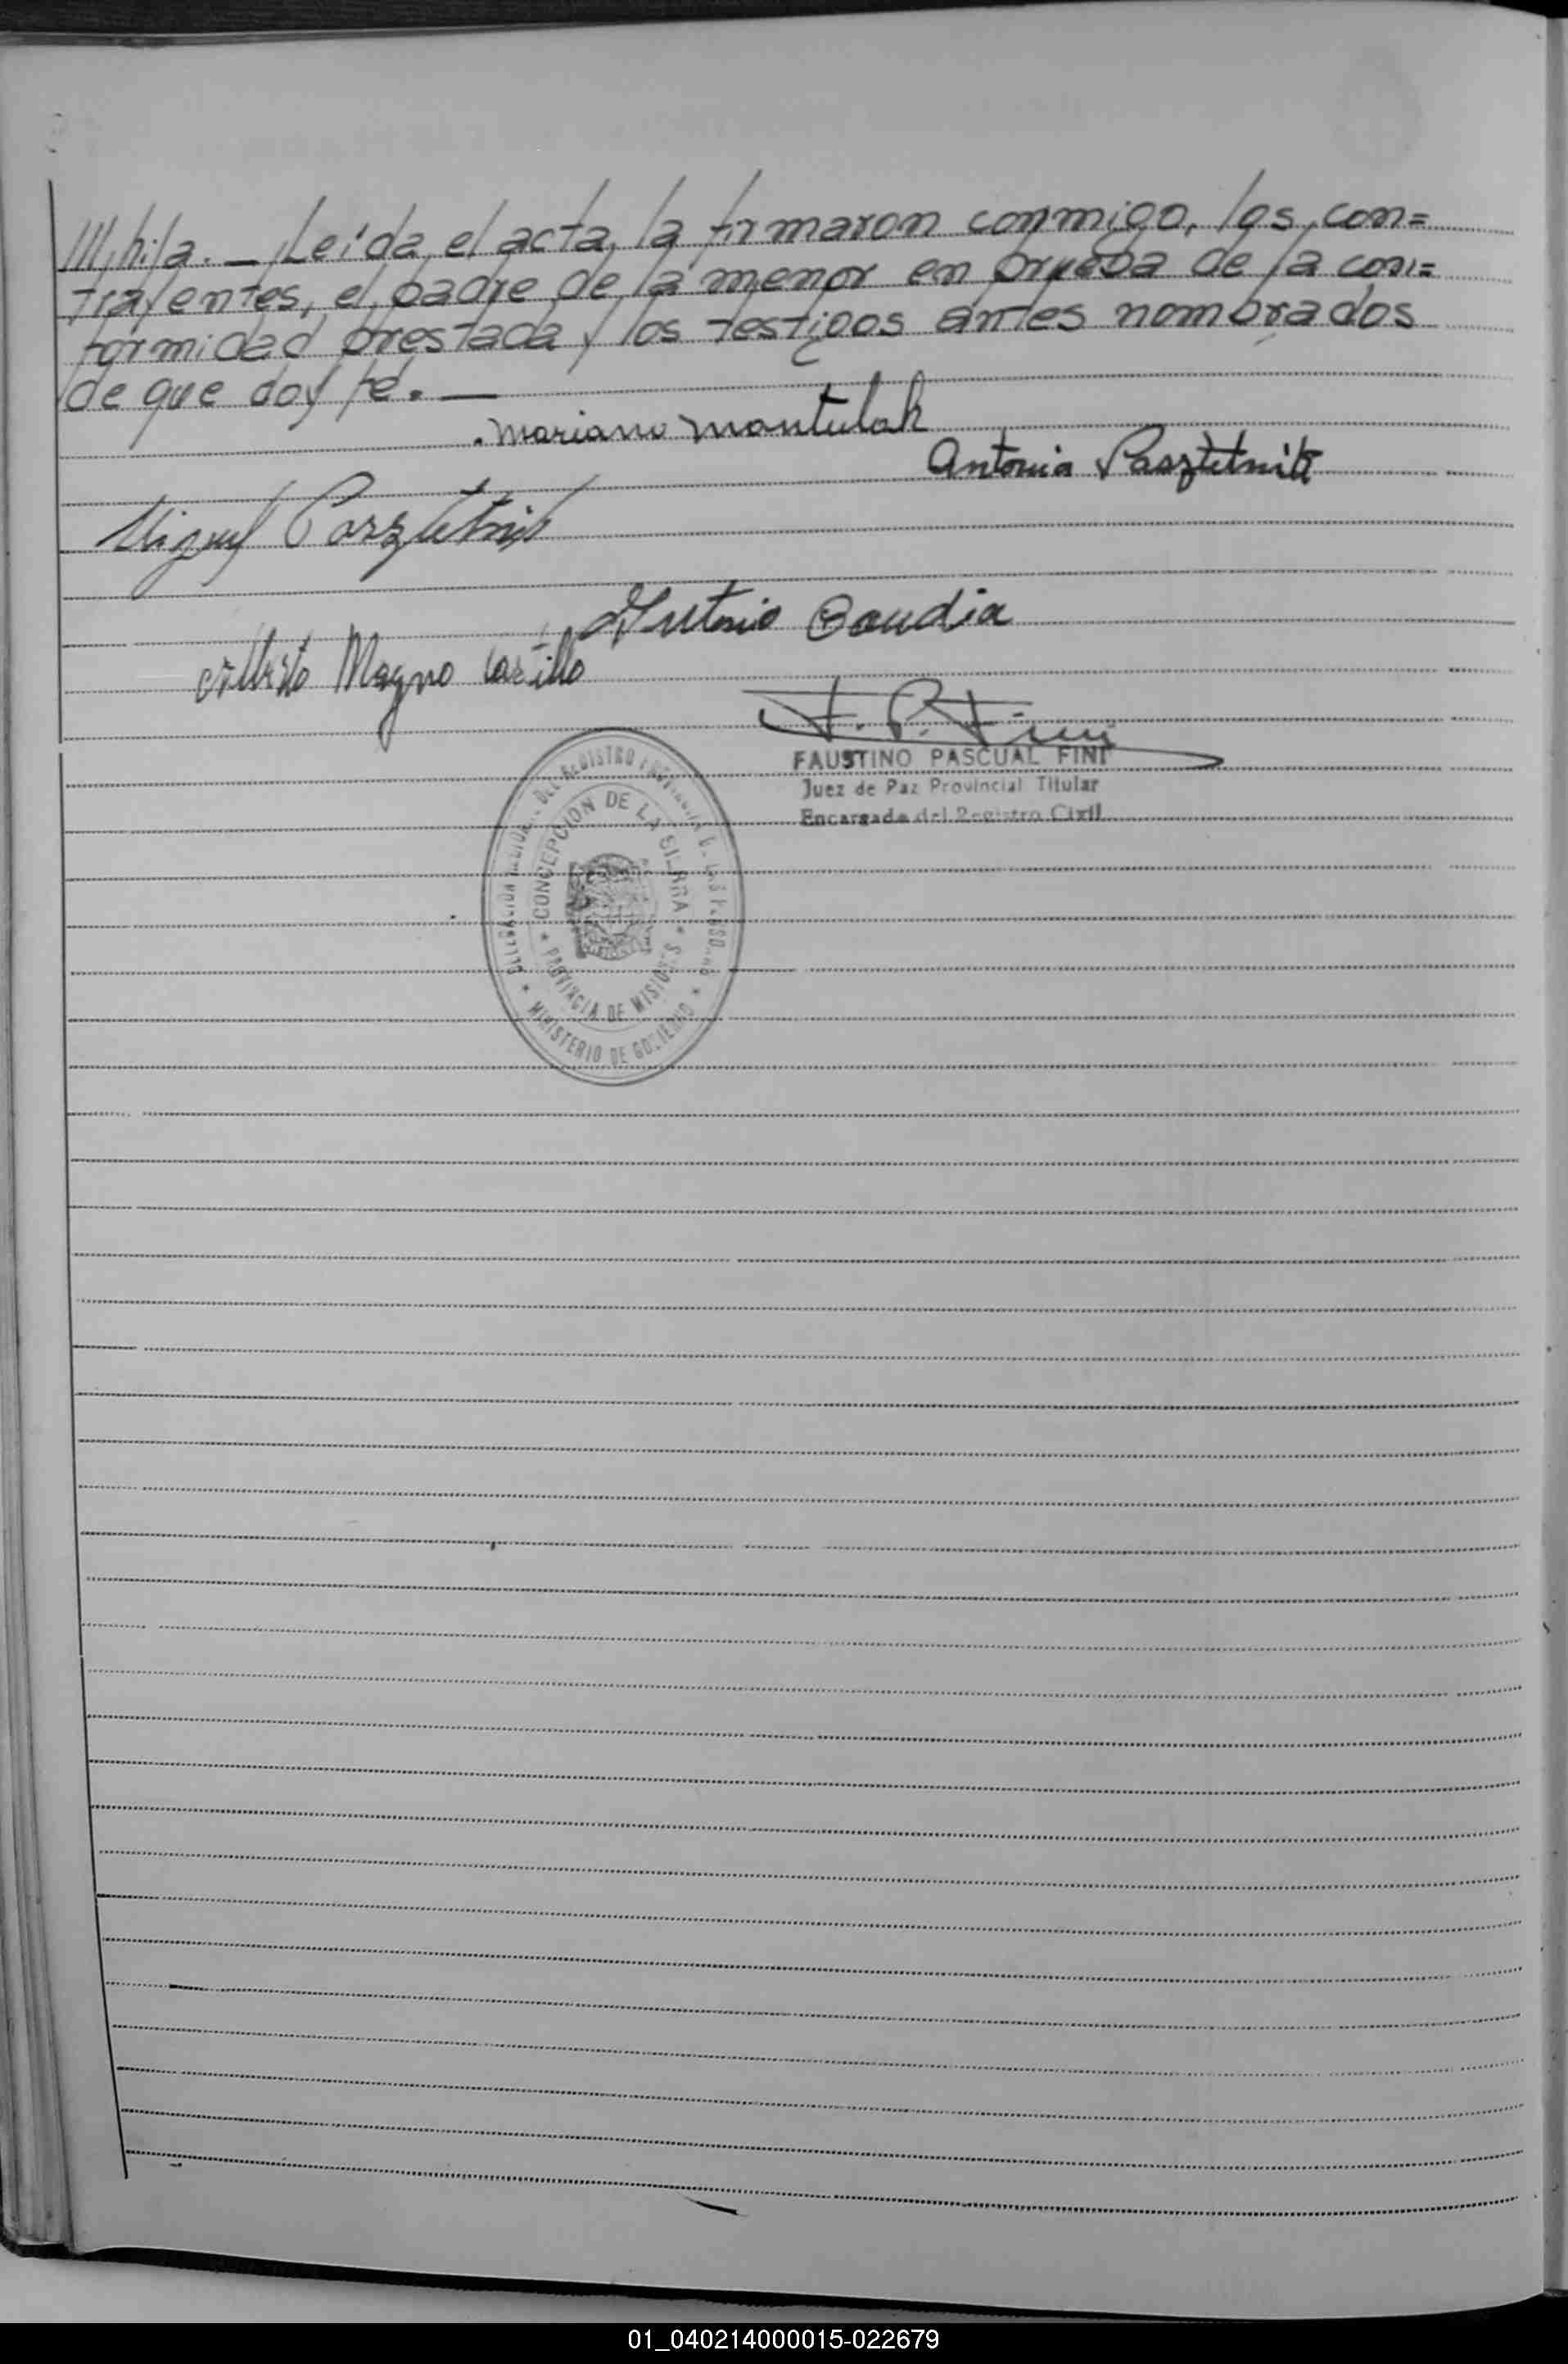 ///hija. — Leída el acta, la firmaron conmigo, los con=
trayentes, el padre de la menor en prueba de la con=
formidad prestada y los testigos antes nombrados
de que doy fé. —
Mariano Mantulak
Antonia Pasztetnik
Miguel Pasztetnik
Antonio Boudia
Alberto Magno Castillo
F. P. Fini
FAUSTINO PASCUAL FINI
Juez de Paz Provincial Titular
Encargado del Registro Civil
DEL REGISTRO PROVINCIAL DE LAS PERSONAS
CONCEPCION DE LA SIERRA
* PROVINCIA DE MISIONES *
* MINISTERIO DE GOBIERNO *
01_040214000015-022679